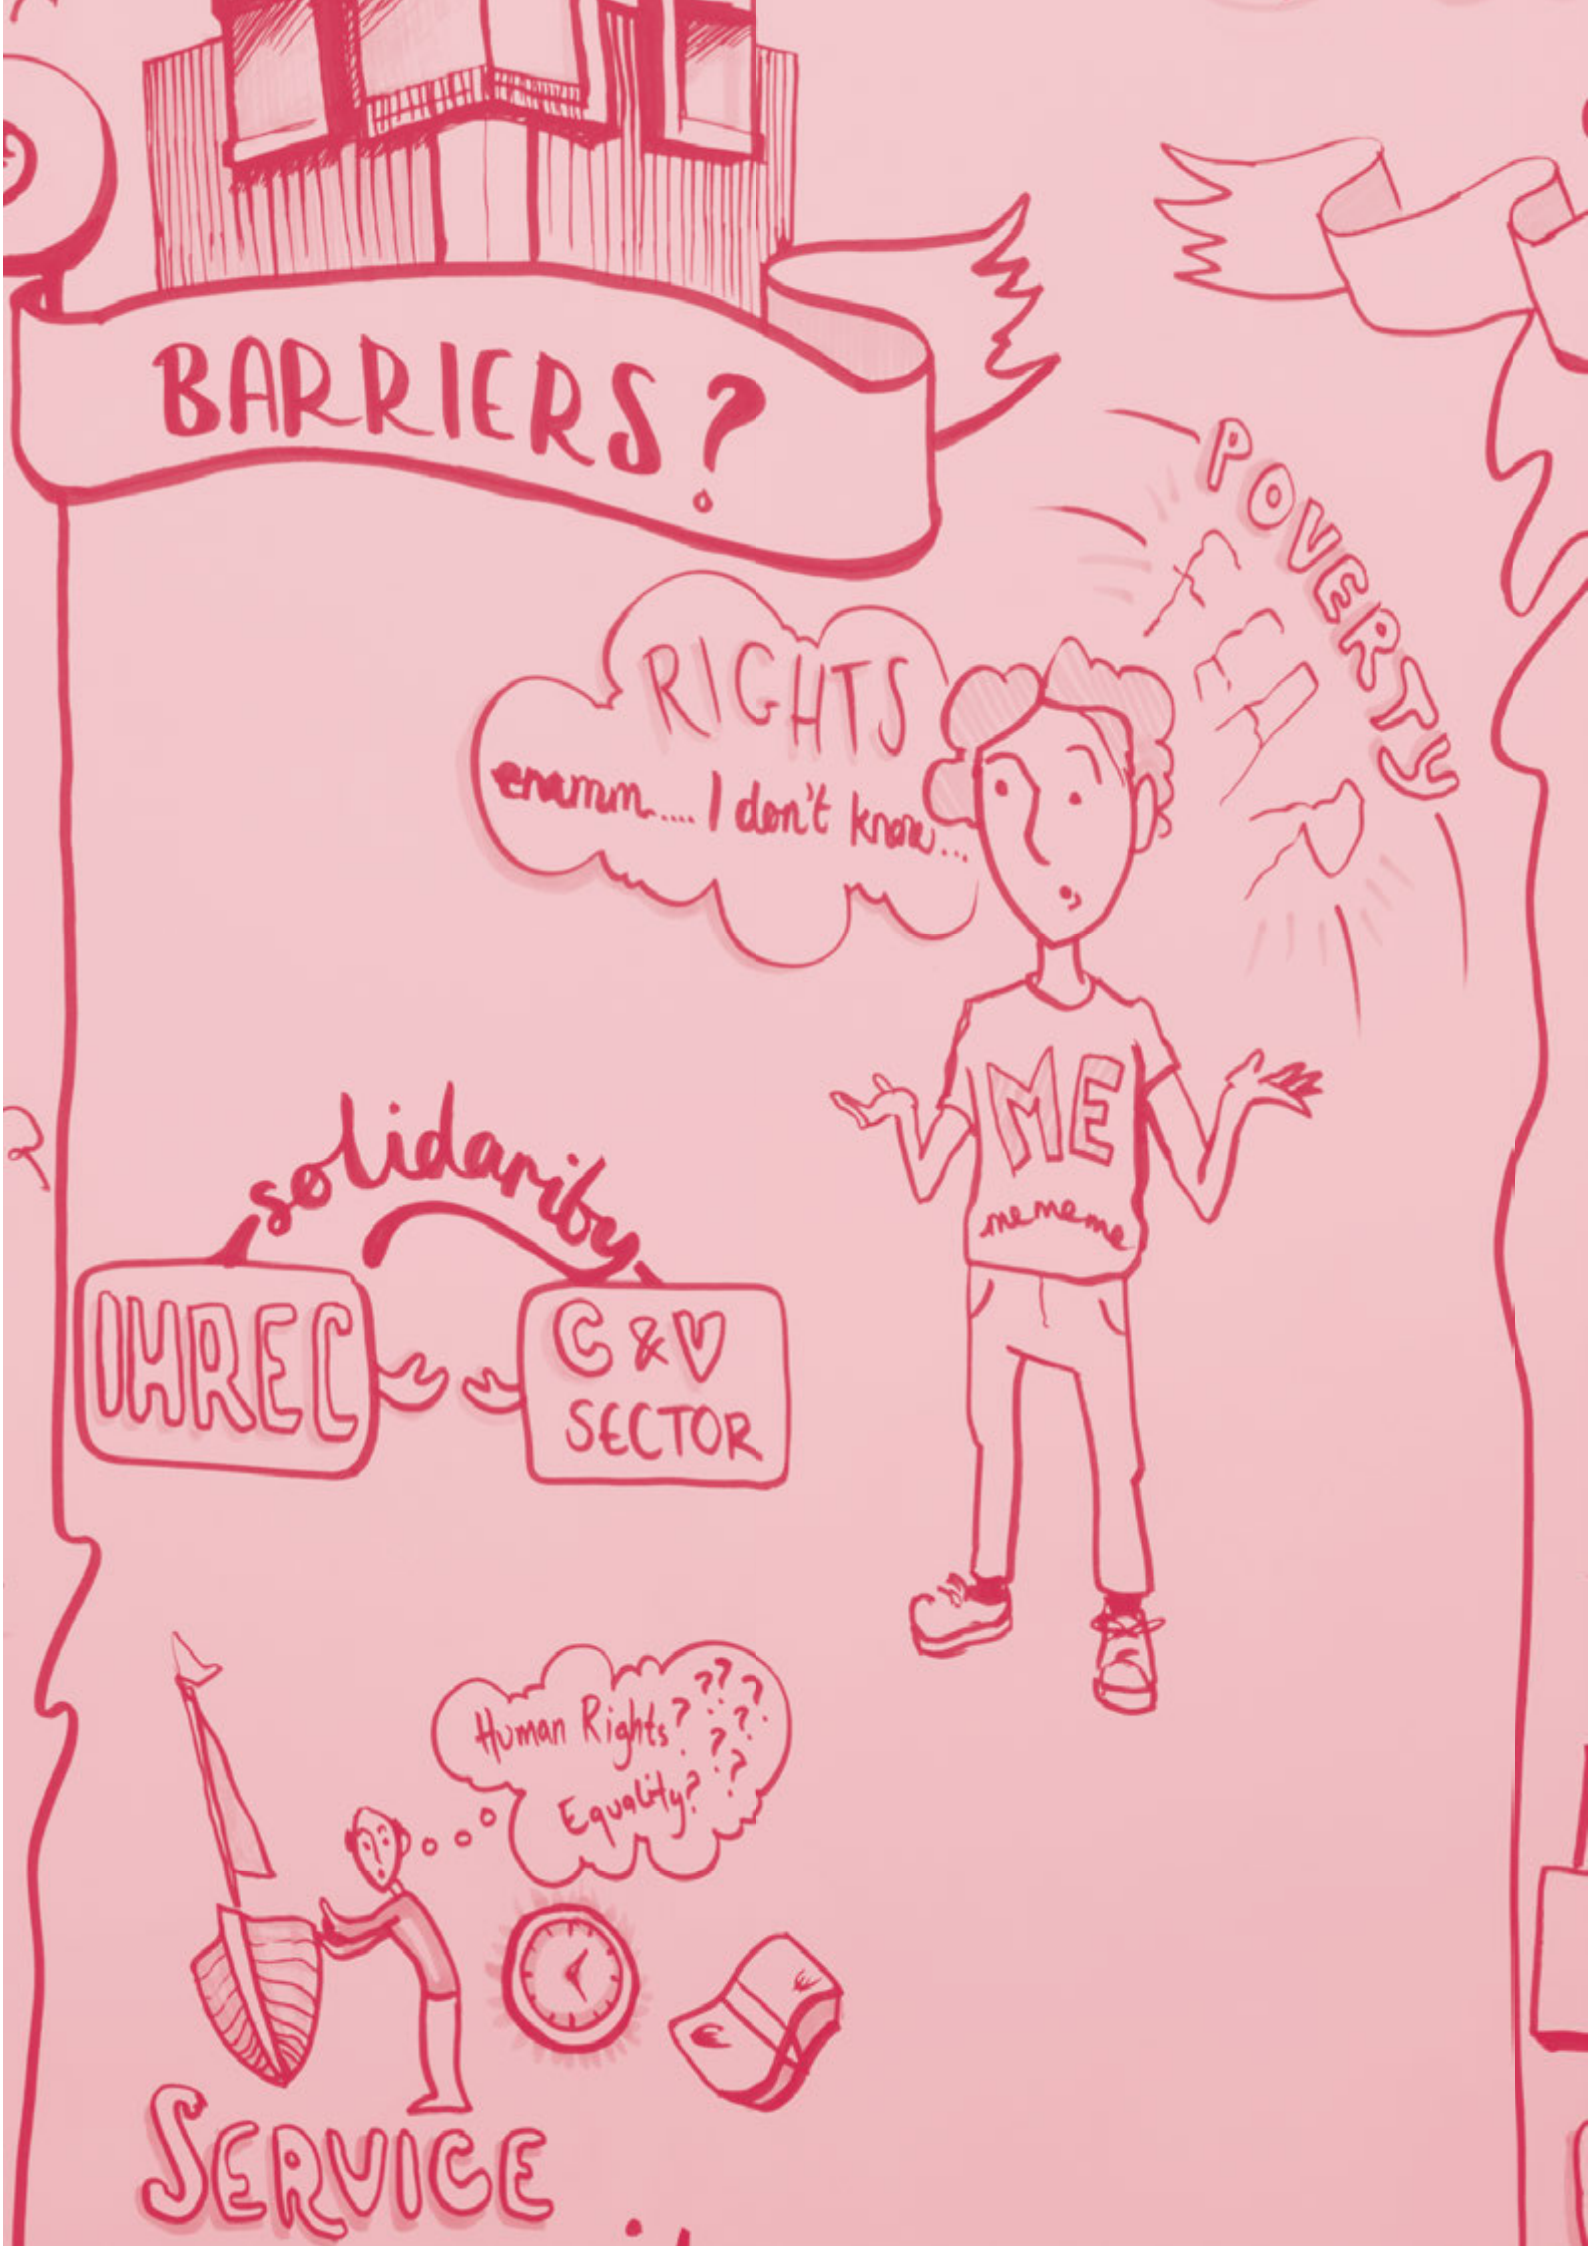 BARRIERS?
POVERTY
RIGHTS
emmm.... I don't know...
ME
mememe
solidarity
IHREC
C & V
SECTOR
Human Rights? ?????
Equality? ???
SERVICE